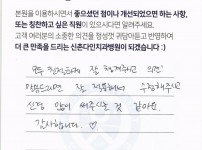 본원을 이용하시면서 좋으셨던 점이나 개선되었으면 하는 사항,
또는 칭찬하고 싶은 직원이 있으시다면 알려주세요.
고객 여러분의 소중한 의견을 정성껏 귀담아듣고 반영하여
더 큰 만족을 드리는 신촌다인치과병원이 되겠습니다 :)
모두 친절하게 잘 설명해주고 의견
잘 적용해서 수정해주시고
신경 많이 써주시는 것 같아요
감사합니다. ♡